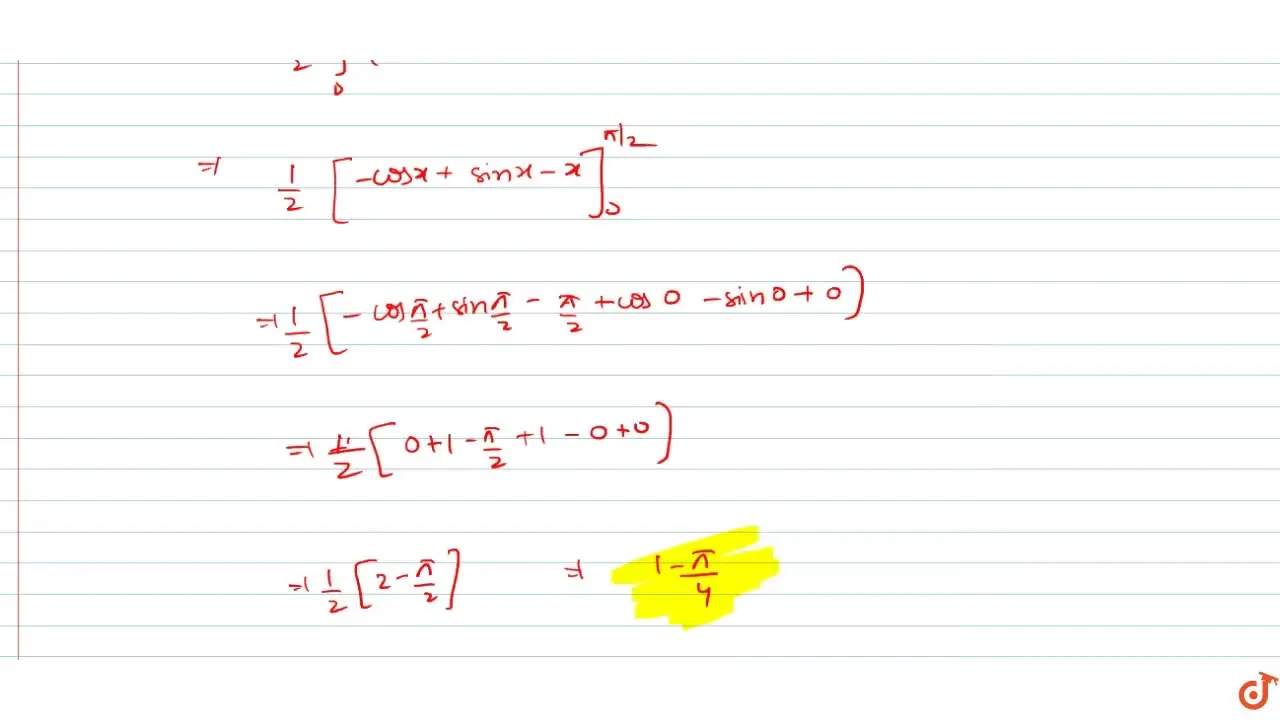 2 ∫ 0
⇒ 1/2 [-cosx + sinx - x]₀^π/2
⇒ 1/2 [- cos π/2 + sin π/2 - π/2 + cos 0 - sin 0 + 0]
⇒ 1/2 [0 + 1 - π/2 + 1 - 0 + 0]
⇒ 1/2 [2 - π/2] ⇒ 1 - π/4